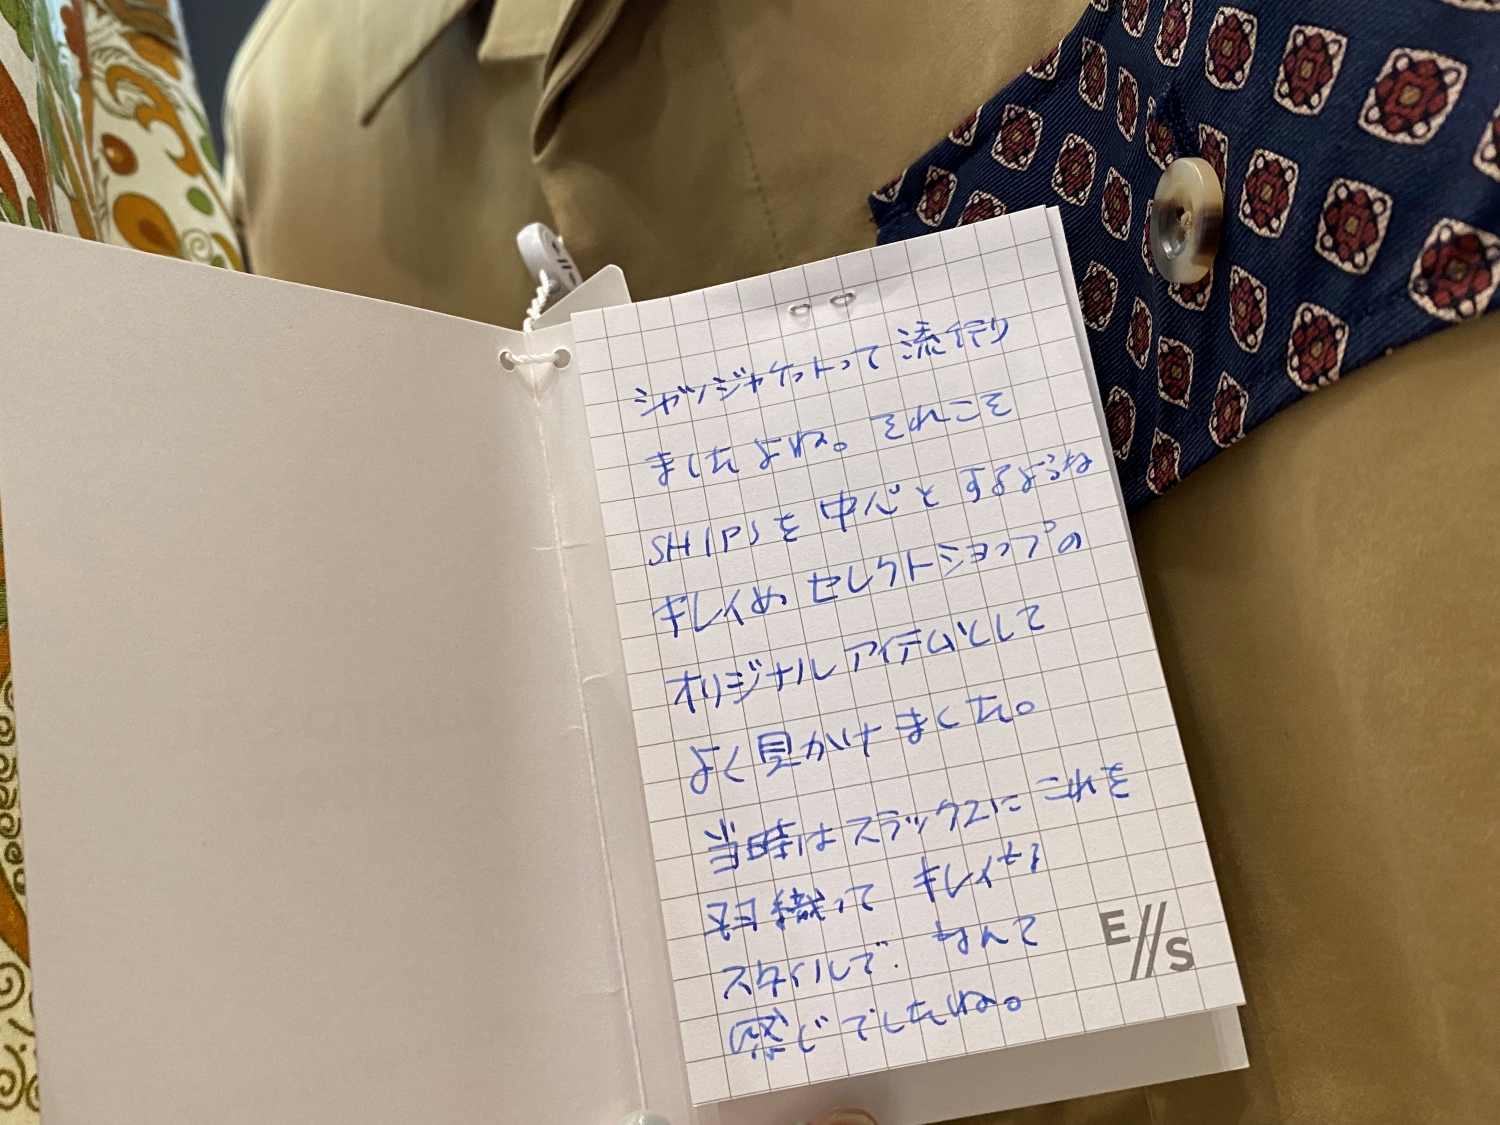 シャツジャケットって 流行り
ましたよね。それこそ
SHIPSを中心とするような
キレイめセレクトショップの
オリジナルアイテムとして
よく見かけました。
当時はスラックスにこれを
羽織って キレイな
スタイルで、なんて
感じでしたね。
E//S